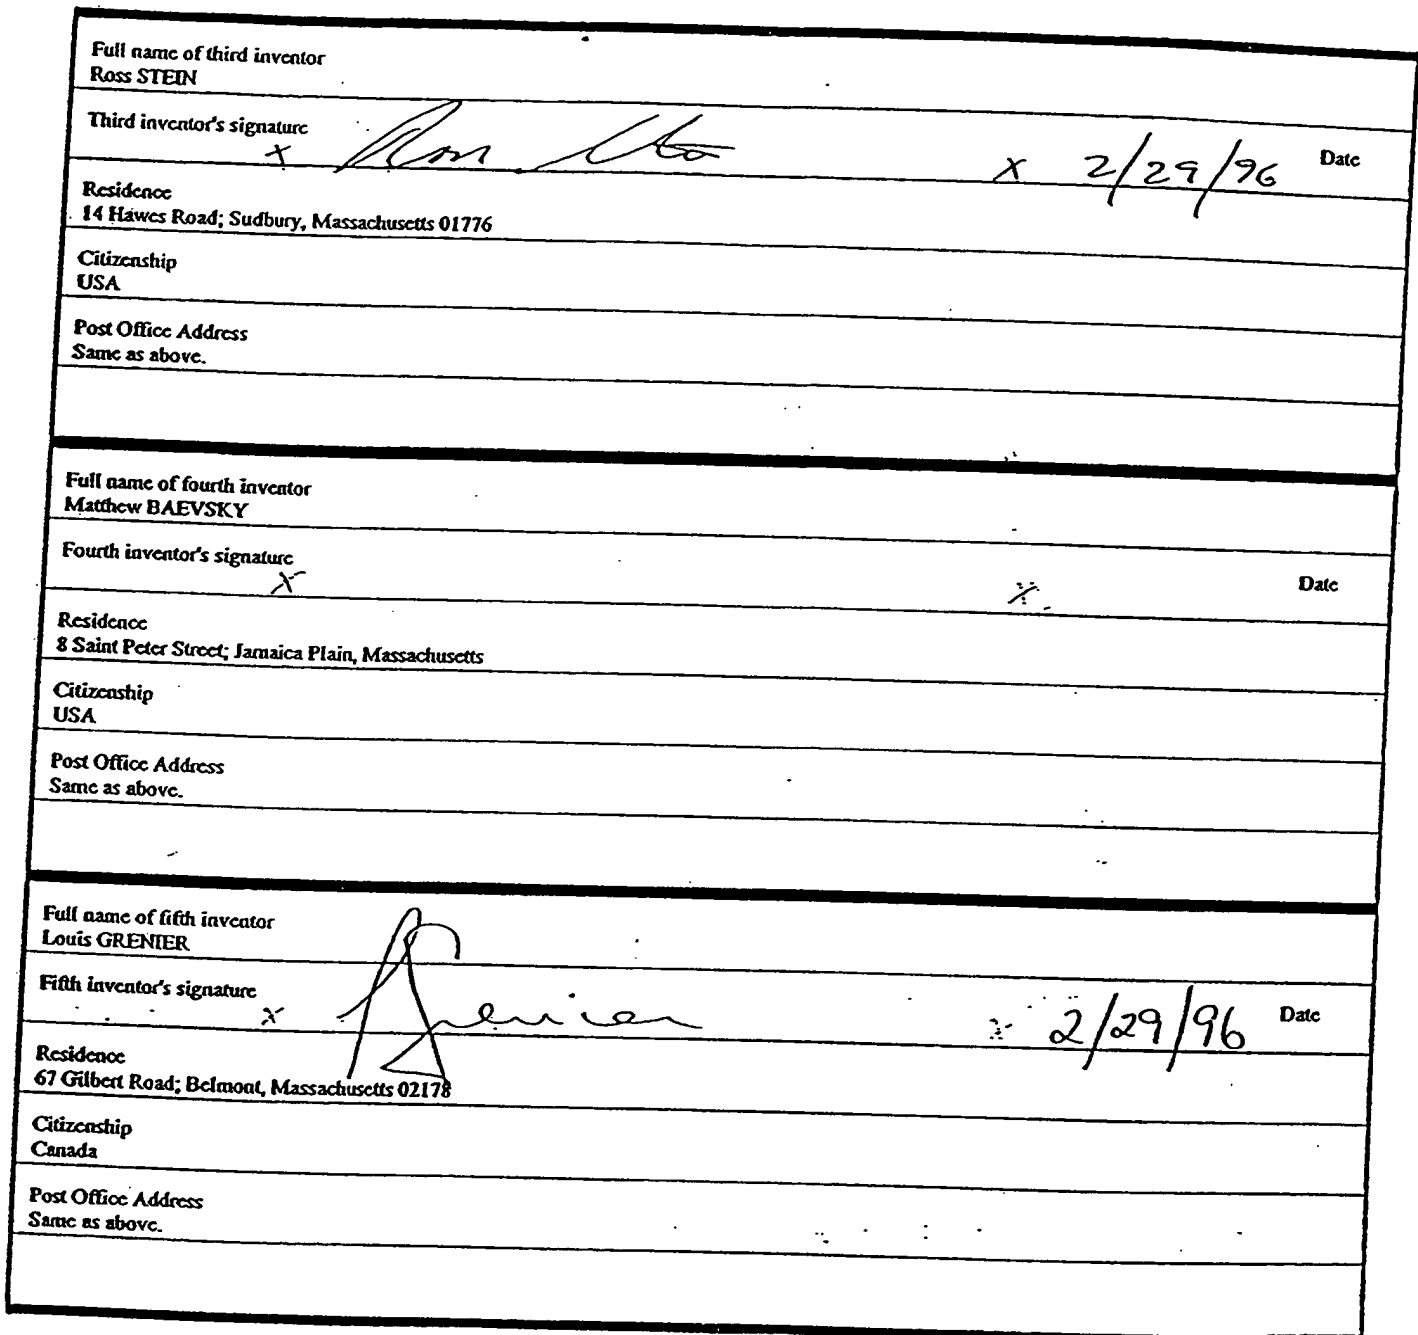 Full name of third inventor
Ross STEIN
Third inventor's signature
x Ross Stein x 2/29/96 Date
Residence
14 Hawes Road; Sudbury, Massachusetts 01776
Citizenship
USA
Post Office Address
Same as above.
Full name of fourth inventor
Matthew BAEVSKY
Fourth inventor's signature
x x Date
Residence
8 Saint Peter Street; Jamaica Plain, Massachusetts
Citizenship
USA
Post Office Address
Same as above.
Full name of fifth inventor
Louis GRENIER
Fifth inventor's signature
x Grenier x 2/29/96 Date
Residence
67 Gilbert Road; Belmont, Massachusetts 02178
Citizenship
Canada
Post Office Address
Same as above.